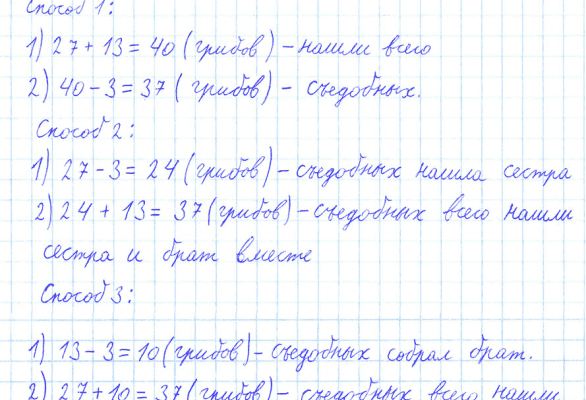 Способ 1:
1) 27 + 13 = 40 (грибов) – нашли всего
2) 40 – 3 = 37 ( грибов) – съедобных.
Способ 2:
1) 27 – 3 = 24 (грибов) – съедобных нашла сестра
2) 24 + 13 = 37 (грибов) – съедобных всего нашли
сестра и брат вместе
Способ 3:
1) 13 – 3 = 10 (грибов) – съедобных собрал брат.
2) 27 + 10 = 37 (грибов) – съедобных всего нашли